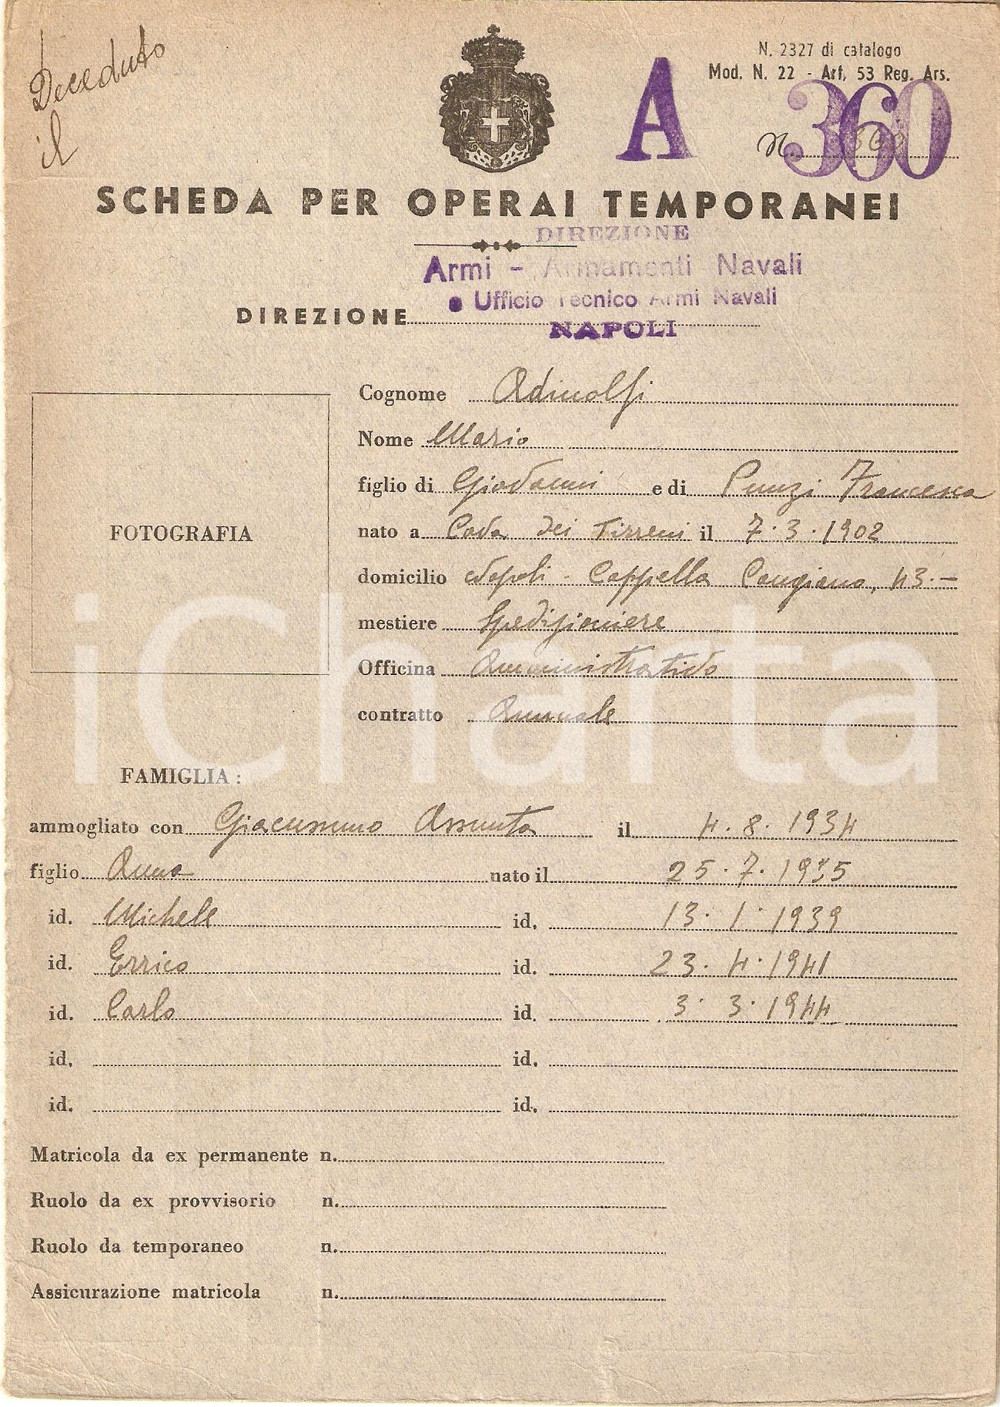 Deceduto
il
N. 2327 di catalogo
Mod. N. 22 - Art, 53 Reg. Ars.
A
N. 360
SCHEDA PER OPERAI TEMPORANEI
DIREZIONE
Armi - Armamenti Navali
e Ufficio Tecnico Armi Navali
DIREZIONE
NAPOLI
Cognome Adinolfi
Nome Mario
figlio di Giovanni e di Punzi Francesca
nato a Cava dei Tirreni il 7.3.1902
FOTOGRAFIA
domicilio Napoli - Cappella Cangiano, 43.-
mestiere Spedizioniere
Officina Amministrativo
contratto Annuale
iCharta
FAMIGLIA :
ammogliato con Giacummo Assunta il 4.8.1934
figlio Anna nato il 25.7.1935
id. Michele id. 13.1.1939
id. Errico id. 23.4.1941
id. Carlo id. 3.3.1944
id. id.
id. id.
Matricola da ex permanente n.
Ruolo da ex provvisorio n.
Ruolo da temporaneo n.
Assicurazione matricola n.